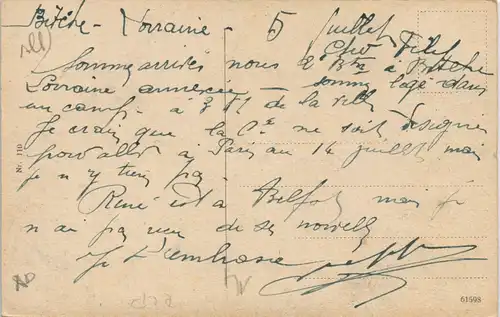 Bitche - Lorraine - 5 Juillet
Sommes arrivés nous 2e à Bitche
Lorraine annexée - sommes logé dans
un camp - à 3 Kl de la ville
Je crois que la Cie ne soit désignée
pour aller à Paris au 14 juillet mais
je n'y tiens pas
René est à Belfort mais je
n'ai pas reçu de ses nouvelles
Je t'embrasse
Nr. 110
61598